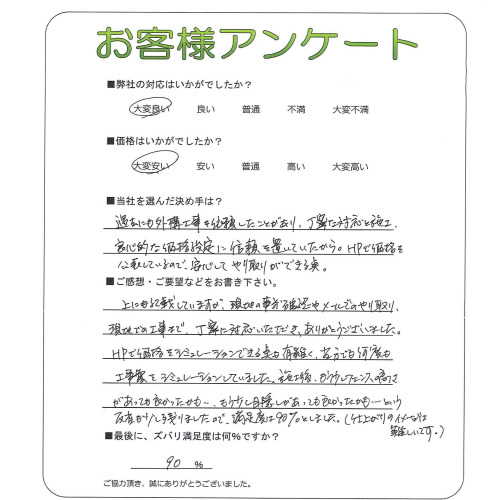 お客様アンケート
■弊社の対応はいかがでしたか？
大変良い 良い 普通 不満 大変不満
■価格はいかがでしたか？
大変安い 安い 普通 高い 大変高い
■当社を選んだ決め手は？
過去にも外構工事を依頼したことがあり、丁寧な対応と施工、
良心的な価格設定に信頼を置いていたから。HPで価格を
公表しているので、安心してやり取りができる点。
■ご感想・ご要望などをお書き下さい。
上にも記載していますが、現地の事前確認やメールでのやり取り、
現地での工事まで、丁寧に対応いただき、ありがとうございました。
HPで価格をシミュレーションできる点も有難く、自分でも何度も
工事案をシミュレーションしていました。施工後、もう少しフェンスの高さ
があっても良かったかも…、もう少し目隠しがあっても良かったかも…という
反省が少し残りましたので、満足度は90%としました。（仕上がりのイメージは
難しいです。）
■最後に、ズバリ満足度は何％ですか？
90 %
ご協力頂き、誠にありがとうございました。